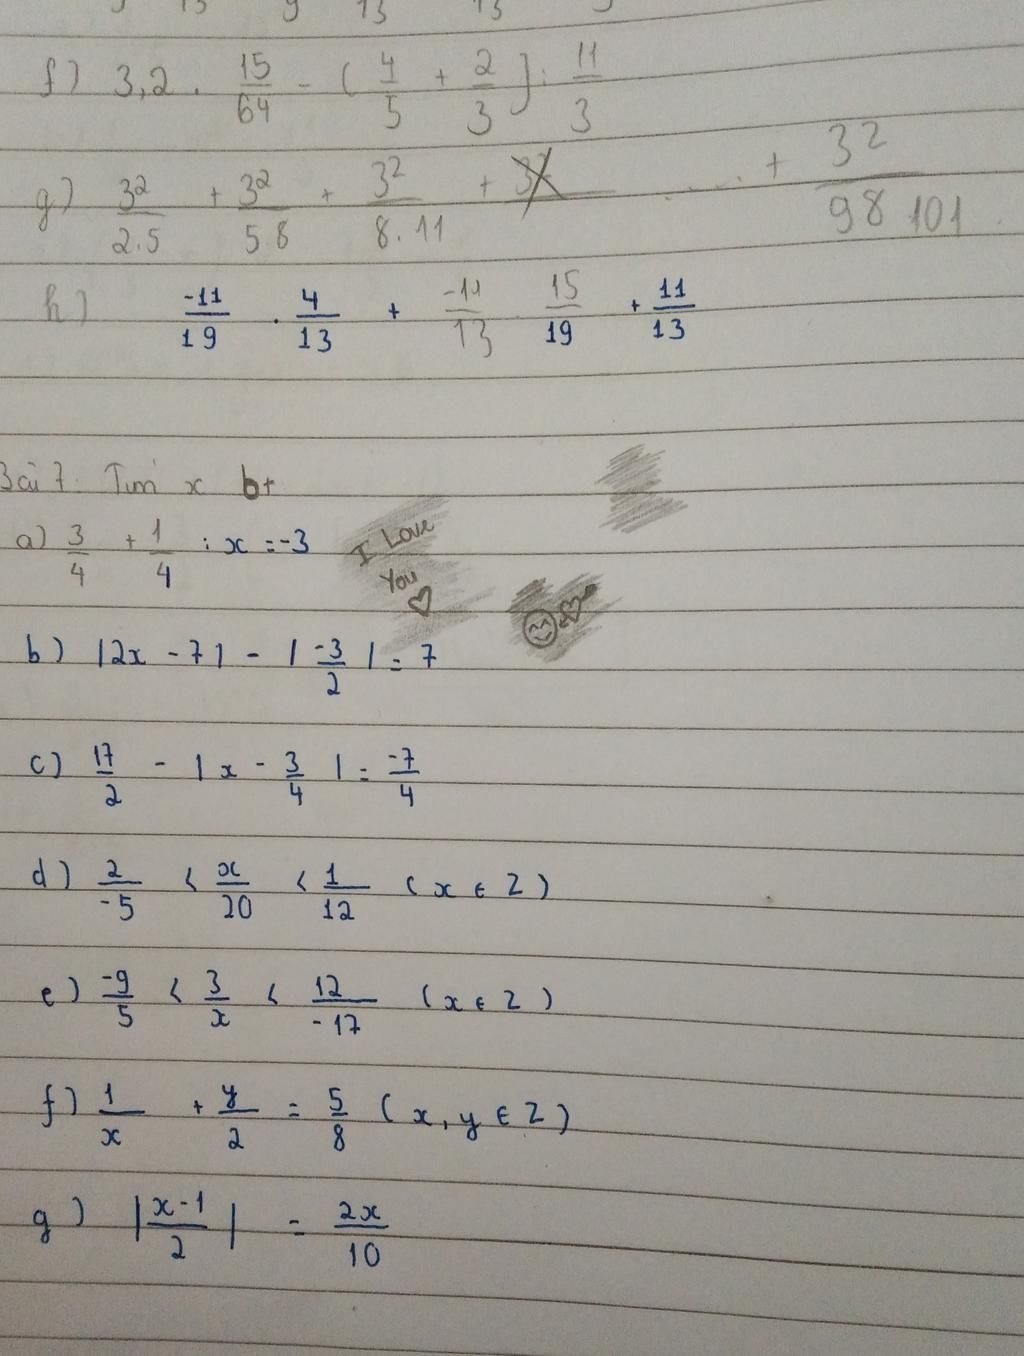 13 9 13 13
f) 3,2 . 15/64 - ( 4/5 + 2/3 ] : 11/3
g) 3²/2.5 + 3²/5 8 + 3²/8.11 + ..... + 3²/98 101
h) -11/19 . 4/13 + -11/13 15/19 + 11/13
Bài 7. Tìm x bt
a) 3/4 + 1/4 : x = -3
I Love
You ♡
b) |2x - 7| - | -3/2 | = 7
c) 17/2 - | x - 3/4 | = -7/4
d) 2/-5 < x/20 < 1/12 ( x ∈ Z )
e) -9/5 < 3/x < 12/-17 ( x ∈ Z )
f) 1/x + y/2 = 5/8 ( x, y ∈ Z )
g) | x-1/2 | = 2x/10